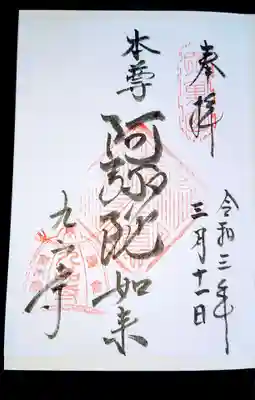 奉拝
令和三年
三月十一日
本尊
阿弥陀如来
九品寺